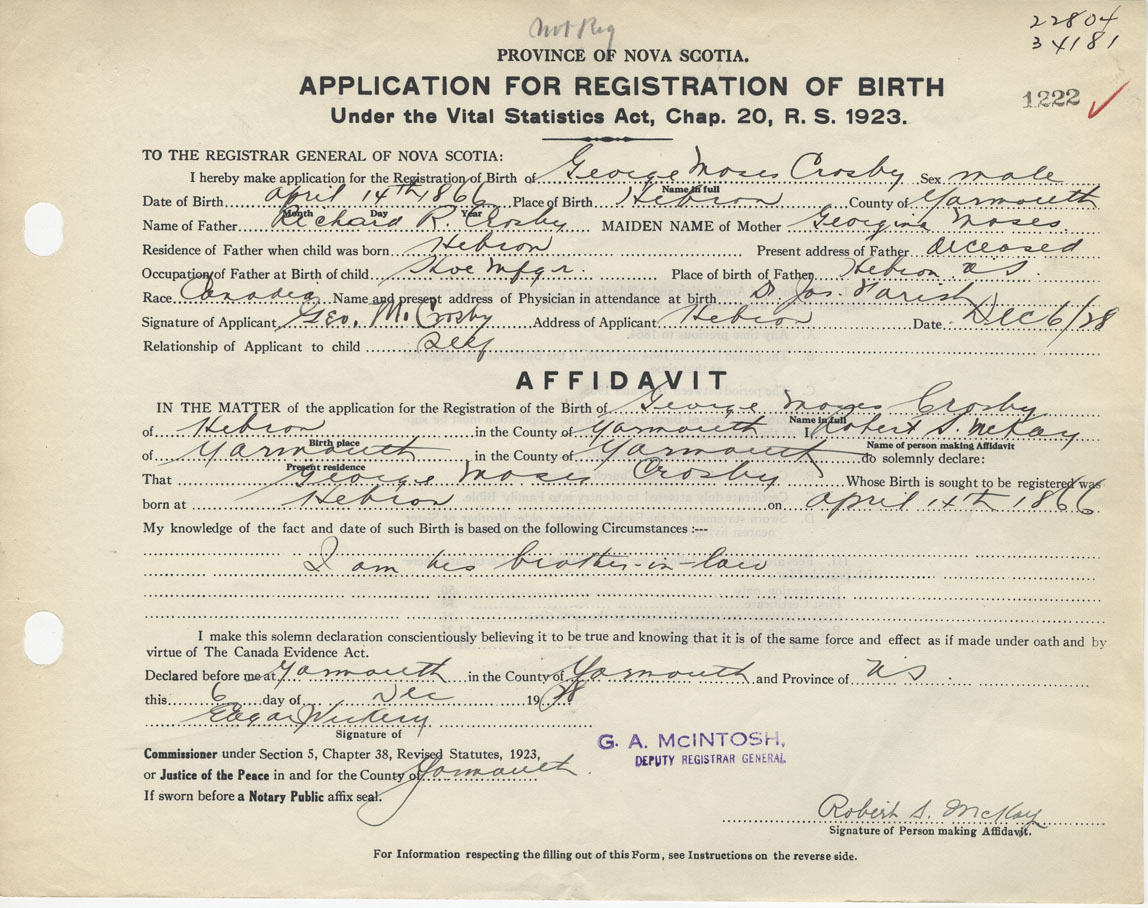 Not Reg
22804
34181
PROVINCE OF NOVA SCOTIA.
APPLICATION FOR REGISTRATION OF BIRTH
1222
Under the Vital Statistics Act, Chap. 20, R. S. 1923.
TO THE REGISTRAR GENERAL OF NOVA SCOTIA:
I hereby make application for the Registration of Birth of George Moses Crosby Sex male
Name in full
Date of Birth April 14th 1866 Place of Birth Hebron County of Yarmouth
Month Day Year
Name of Father Richard R. Crosby MAIDEN NAME of Mother Georgina Moses.
Residence of Father when child was born Hebron Present address of Father deceased
Occupation of Father at Birth of child Shoe Mfgr. Place of birth of Father Hebron NS.
Race Canadian Name and present address of Physician in attendance at birth Dr. Jos. Harish
Signature of Applicant Geo. M. Crosby Address of Applicant Hebron Date Dec 6/28
Relationship of Applicant to child Self
AFFIDAVIT
IN THE MATTER of the application for the Registration of the Birth of George Moses Crosby
Name in full
of Hebron in the County of Yarmouth I, Robert S. McKay
Birth place Name of person making Affidavit
of Yarmouth in the County of Yarmouth do solemnly declare:
Present residence
That George Moses Crosby Whose Birth is sought to be registered was
born at Hebron on April 14th 1866
My knowledge of the fact and date of such Birth is based on the following Circumstances :---
I am his brother-in-law
I make this solemn declaration conscientiously believing it to be true and knowing that it is of the same force and effect as if made under oath and by
virtue of The Canada Evidence Act.
Declared before me at Yarmouth in the County of Yarmouth and Province of NS
this 6 day of Dec 1928
Edgar Vickery
Signature of
Commissioner under Section 5, Chapter 38, Revised Statutes, 1923,
or Justice of the Peace in and for the County of Yarmouth.
If sworn before a Notary Public affix seal.
G. A. McINTOSH,
DEPUTY REGISTRAR GENERAL
Robert S. McKay
Signature of Person making Affidavit.
For Information respecting the filling out of this Form, see Instructions on the reverse side.